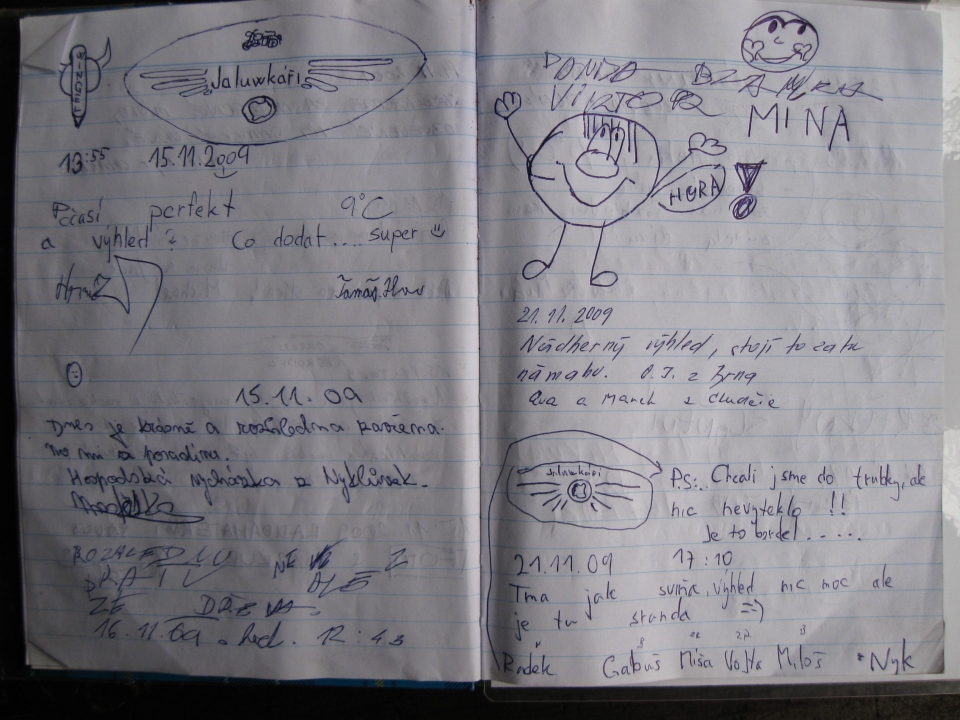 Jaluwkáři
13:55 15.11.2009
Počasí perfekt 9°C
a výhled? Co dodat.... super
15.11.09
Dnes je krásně a rozhledna zavřena.
Hospodská vycházka z Nyklůvek.
ROZHLEDNU NE Z
ZE ALE
ZE DŘEVA.
16.11.09. hod. 12:43
DONDO
VIKTOR
MINA
HURÁ
21.11.2009
Nádherný výhled, stojí to za tu
námahu. O.T. z Brna
Eva a Marek z Chudčic
Jaluwkáři
P.S.: Chcali jsme do trubky, ale
nic nevyteklo!!
Je to bordel.....
21.11.09 17:10
Tma jak sviňa, výhled nic moc ale
je tu sranda =)
Radek Gabuš Míša Vojta Miloš *Nyk